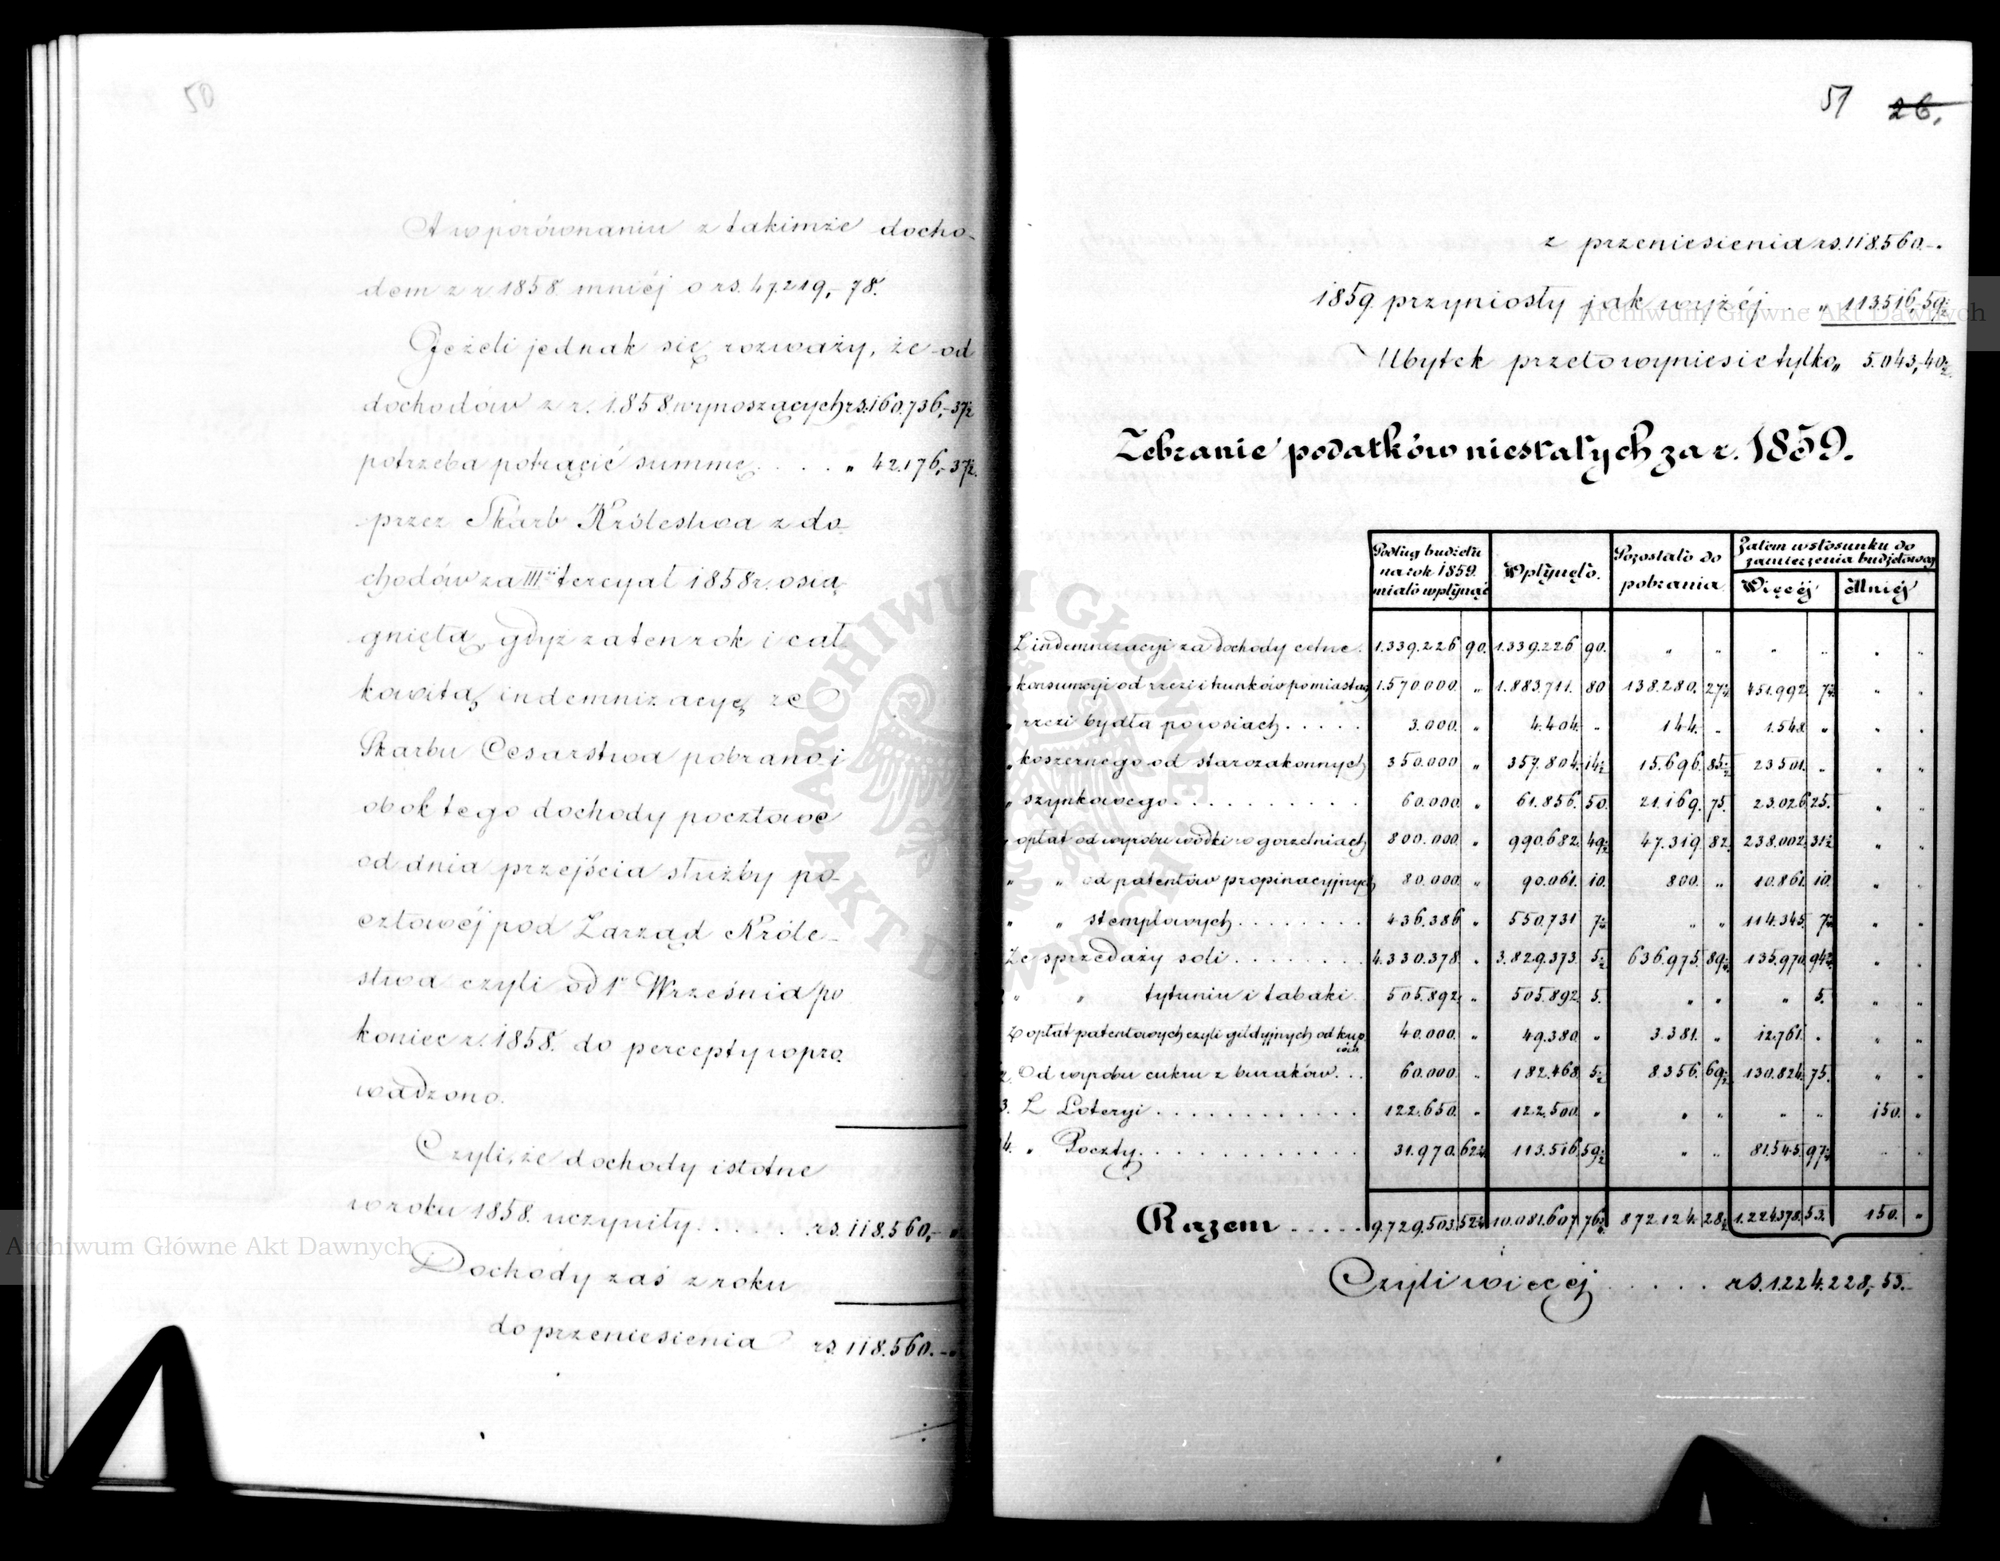 50
A w porównaniu z takimże docho-
dem z r. 1858 mniéj o rs. 47.219,-78.
Jeżeli jednak się rozważy, że od
dochodów z r. 1858 wynoszących rs. 160.736,-37½
potrzeba potrącić summę . . . . „ 42.176,-37½
przez Skarb Królestwa z do-
chodów za III tercyał 1858 r. osią-
gniętą, gdyż za ten rok i cał-
kowitą indemnizacyę ze
Skarbu Cesarstwa pobrano i
obok tego dochody pocztowe
od dnia przejścia służby po-
cztowéj pod Zarząd Króle-
stwa czyli od 1º Września po
koniec r. 1858. do percepty wpro-
wadzono.
Czyli, że dochody istotne
w roku 1858. uczyniły . . . . . rs. 118.560,- „
Dochody zaś z roku
do przeniesienia rs. 118.560.- „
51 26.
z przeniesienia rs. 118.560.-.
1859. przyniosły jak wyżéj . . „ 113.516,-59½
Ubytek przeto wyniesie tylko „ 5.043,-40½
Zebranie podatków niestałych za r. 1859.
Podług budżetu na rok 1859. miało wpłynąć Wpłynęło. Pozostało do pobrania Zatem w stosunku do zamierzenia budżetowego
Więcéj Mniéj
Z indemnizacyi za dochody celne. 1.339.226 90. 1.339.226 90. „ „ „ „ „ „
„ konsumcyi od rzezi i trunków po miastach 1.570.000. „ 1.883.711. 80 138.280. 27½ 451.992. 7½ „ „
„ rzezi bydła po wsiach . . . . . 3.000. „ 4.404. „ 144. „ 1.548. „ „ „
„ koszernego od starozakonnych 350.000 „ 357.804. 14½ 15.696. 85½ 23.501. „ „ „
„ szynkowego . . . . . . . . . . 60.000. „ 61.856. 50. 21.169. 75. 23.026 25. „ „
„ opłat od wyrobu wódki w gorzelniach 800.000. „ 990.682. 49½ 47.319 82. 238.002. 31½ „ „
„ „ od patentów propinacyjnych 80.000. „ 90.061. 10. 800. „ 10.861. 10. „ „
„ „ stemplowych . . . . . . . 436.386 „ 550.731 7½ „ „ 114.345. 7½ „ „
Ze sprzedaży soli . . . . . . . 4.330.378. „ 3.829.373. 5½ 636.975. 89½ 135.970. 94½ „ „
„ „ tytuniu i tabaki. 505.892. „ 505.892 5. „ „ „ 5. „ „
Z opłat patentowych czyli gildyjnych od kupców 40.000. „ 49.380. „ 3.381. „ 12.761. „ „ „
2. Od wyrobu cukru z buraków . . . 60.000. „ 182.468. 5½ 8.356. 69½ 130.824. 75. „ „
3. Z Loteryi . . . . . . . . . . . 122.650. „ 122.500. „ „ „ „ „ 150. „
4. „ Poczty . . . . . . . . . . . . 31.970. 62½ 113.516 59½ „ „ 81.545. 97½ „ „
Razem . . . . . 9.729.503. 52½ 10.081.607 76½ 872.124. 28½ 1.224.378. 53. 150. „
Czyli więcéj . . . . . rs. 1.224.228,-53.-
Archiwum Główne Akt Dawnych
Archiwum Główne Akt Dawnych
ARCHIWUM GŁÓWNE AKT DAWNYCH